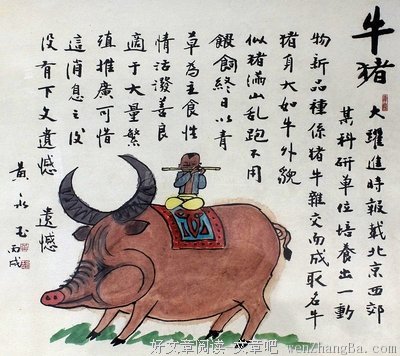 牛猪
大躍進時報載北京西郊
某科研單位培養出一動
物新品種係猪牛雜交而成取名牛
猪身大如牛外貌
似猪滿山乱跑不用
餵飼終日以青
草為主食性
情活潑善良
適于大量繁
殖推廣可惜
這消息之後
没有下文遺憾 遺憾
黄永玉 丙戌
好文章阅读 文章吧 wenZhangBa.Com